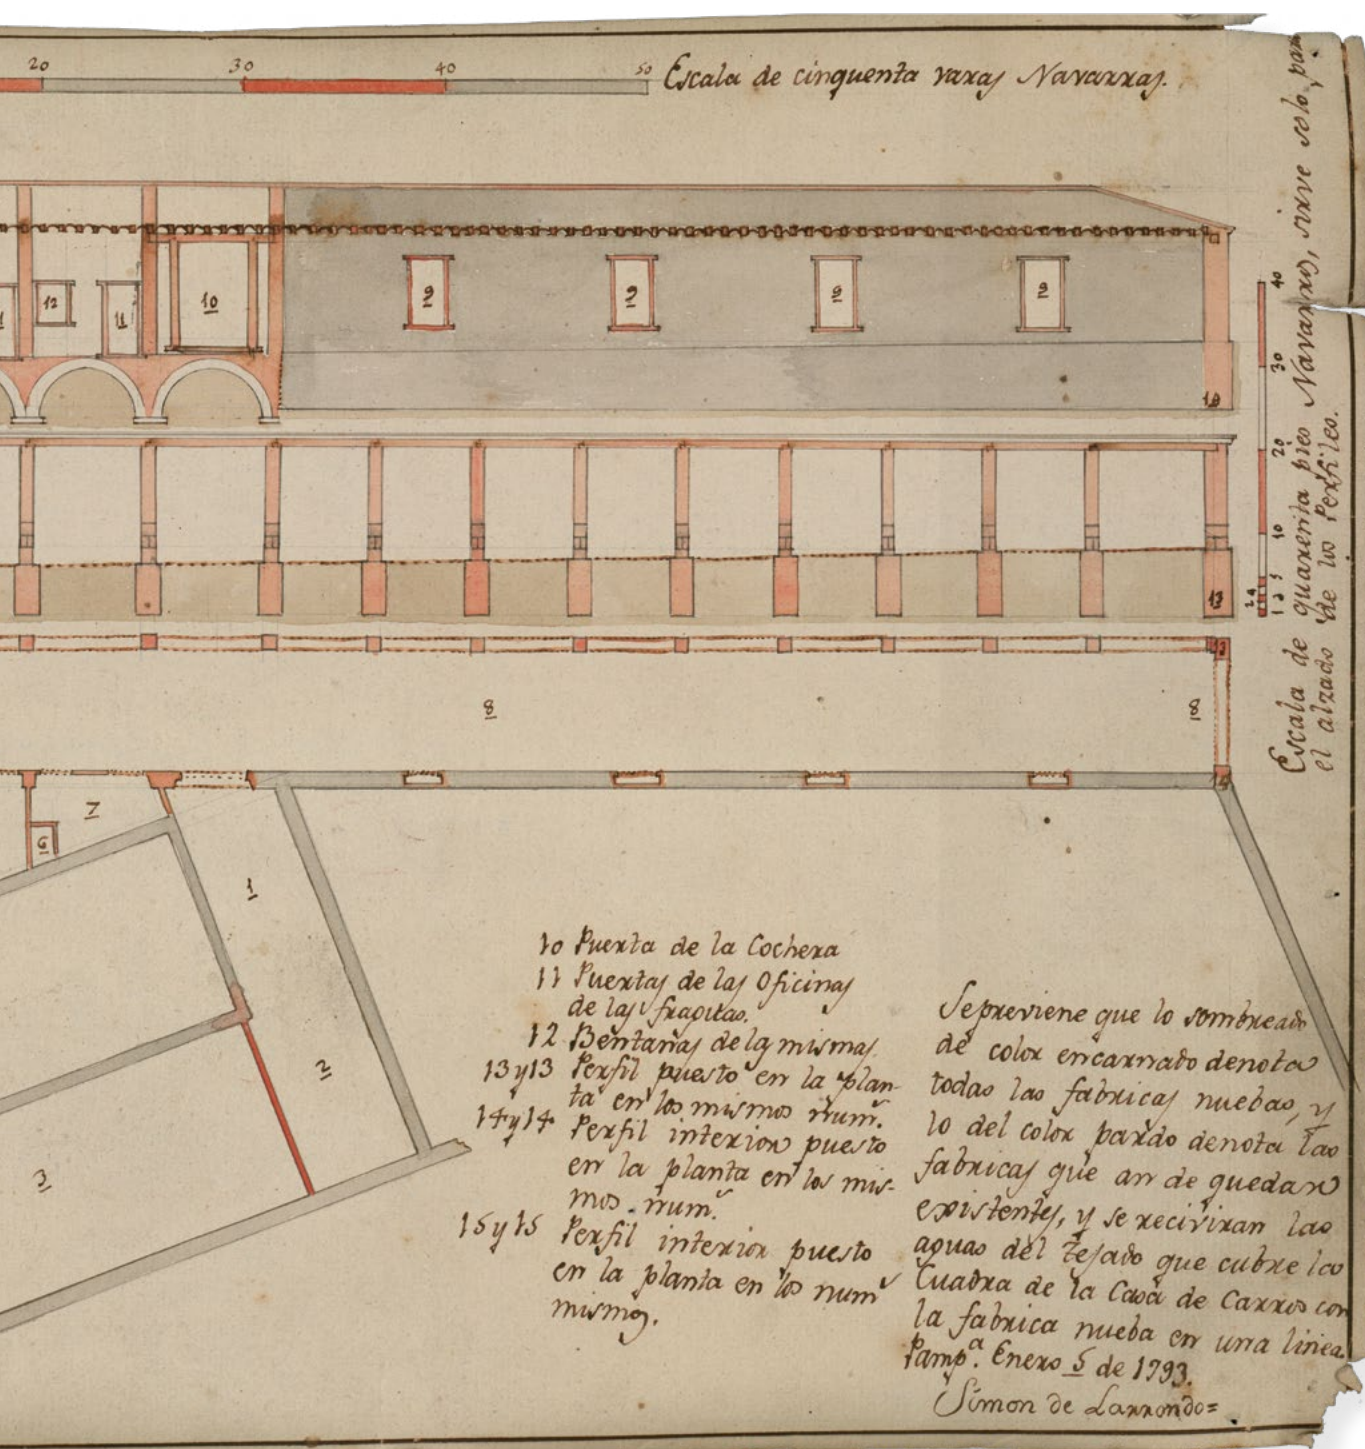 20 30 40 50 Escala de cinquenta varas Navarras.
12 11 10 9 9 9 9
14
13
13
8 8
14
7
6
1
2
3
40
30
20
10
5
1 2 3 4
Escala de quarenta pies Navarros, sirve solo para
el alzado de los Perfiles.
10 Puerta de la Cochera
11 Puertas de las Oficinas
de las fraguas.
12 Bentanas de las mismas
13 y 13 Perfil puesto en la plan-
ta en los mismos num.s
14 y 14 Perfil interior puesto
en la planta en los mis-
mos num.s
15 y 15 Perfil interior puesto
en la planta en los num.s
mismos.
Se previene que lo sombreado
de color encarnado denota
todas las fabricas nuebas, y
lo del color pardo denota las
fabricas que an de quedar
existentes, y se reciviran las
aguas del tejado que cubre la
Cuadra de la Casa de Carros con
la fabrica nueba en una linea.
Pamp.a Enero 5 de 1793.
Simon de Larrondo=